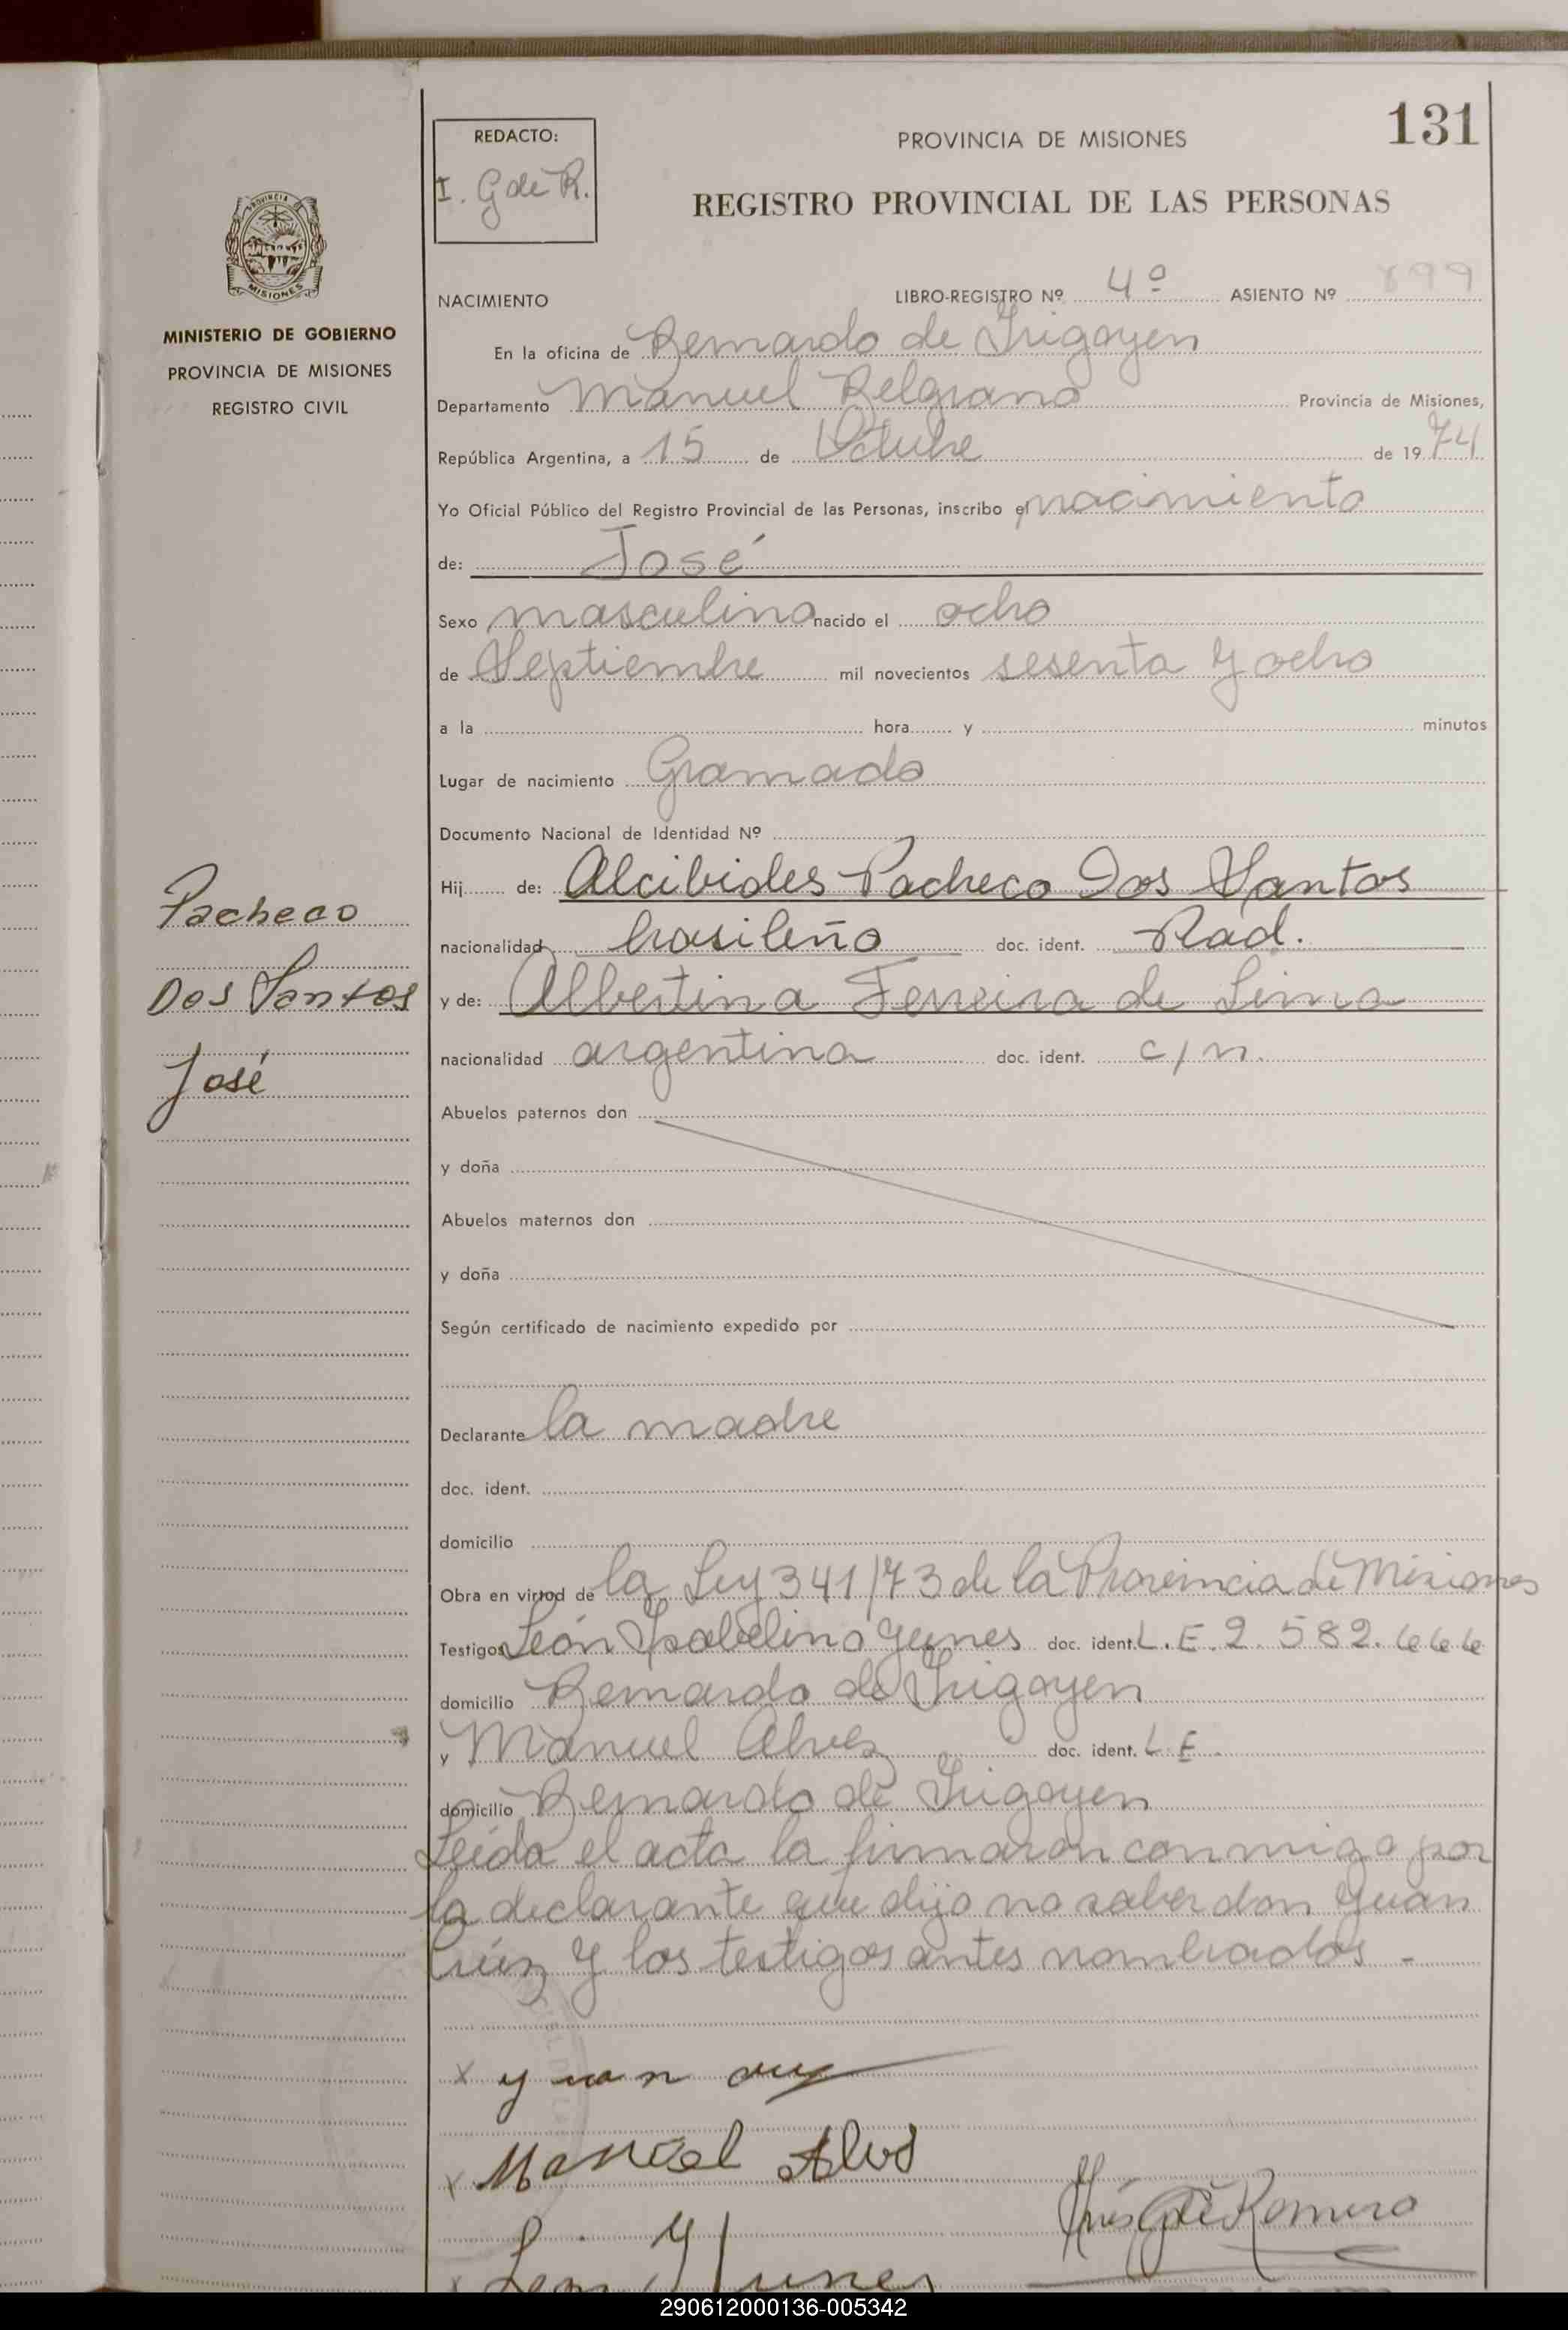 131
REDACTO:
I. G de R.
PROVINCIA DE MISIONES
REGISTRO PROVINCIAL DE LAS PERSONAS
PROVINCIA
MISIONES
MINISTERIO DE GOBIERNO
PROVINCIA DE MISIONES
REGISTRO CIVIL
NACIMIENTO LIBRO-REGISTRO Nº 4º ASIENTO Nº 899
En la oficina de Bernardo de Irigoyen
Departamento Manuel Belgrano Provincia de Misiones,
República Argentina, a 15 de Octubre de 1974
Yo Oficial Público del Registro Provincial de las Personas, inscribo el nacimiento
de: José
Sexo masculino nacido el ocho
de Septiembre mil novecientos sesenta y ocho
a la hora y minutos
Lugar de nacimiento Gramado
Documento Nacional de Identidad Nº
Hij de: Alcibides Pacheco Dos Santos
nacionalidad brasileño doc. ident. Rad.
y de: Albertina Ferreira de Lima
nacionalidad argentina doc. ident. c/n.
Pacheco
Dos Santos
José
Abuelos paternos don
y doña
Abuelos maternos don
y doña
Según certificado de nacimiento expedido por
Declarante la madre
doc. ident.
domicilio
Obra en virtud de la Ley 341/73 de la Provincia de Misiones
Testigos León Isabelino Yunes doc. ident. L.E. 2.582.666
domicilio Bernardo de Irigoyen
y Manuel Alvez doc. ident. L.E.
domicilio Bernardo de Irigoyen
Leida el acta la firmaron conmigo por
la declarante que dijo no saber don Juan
Cruz y los testigos antes nombrados -
x
x Manoel
Inés G de Romero
x Leon Yunes
290612000136-005342